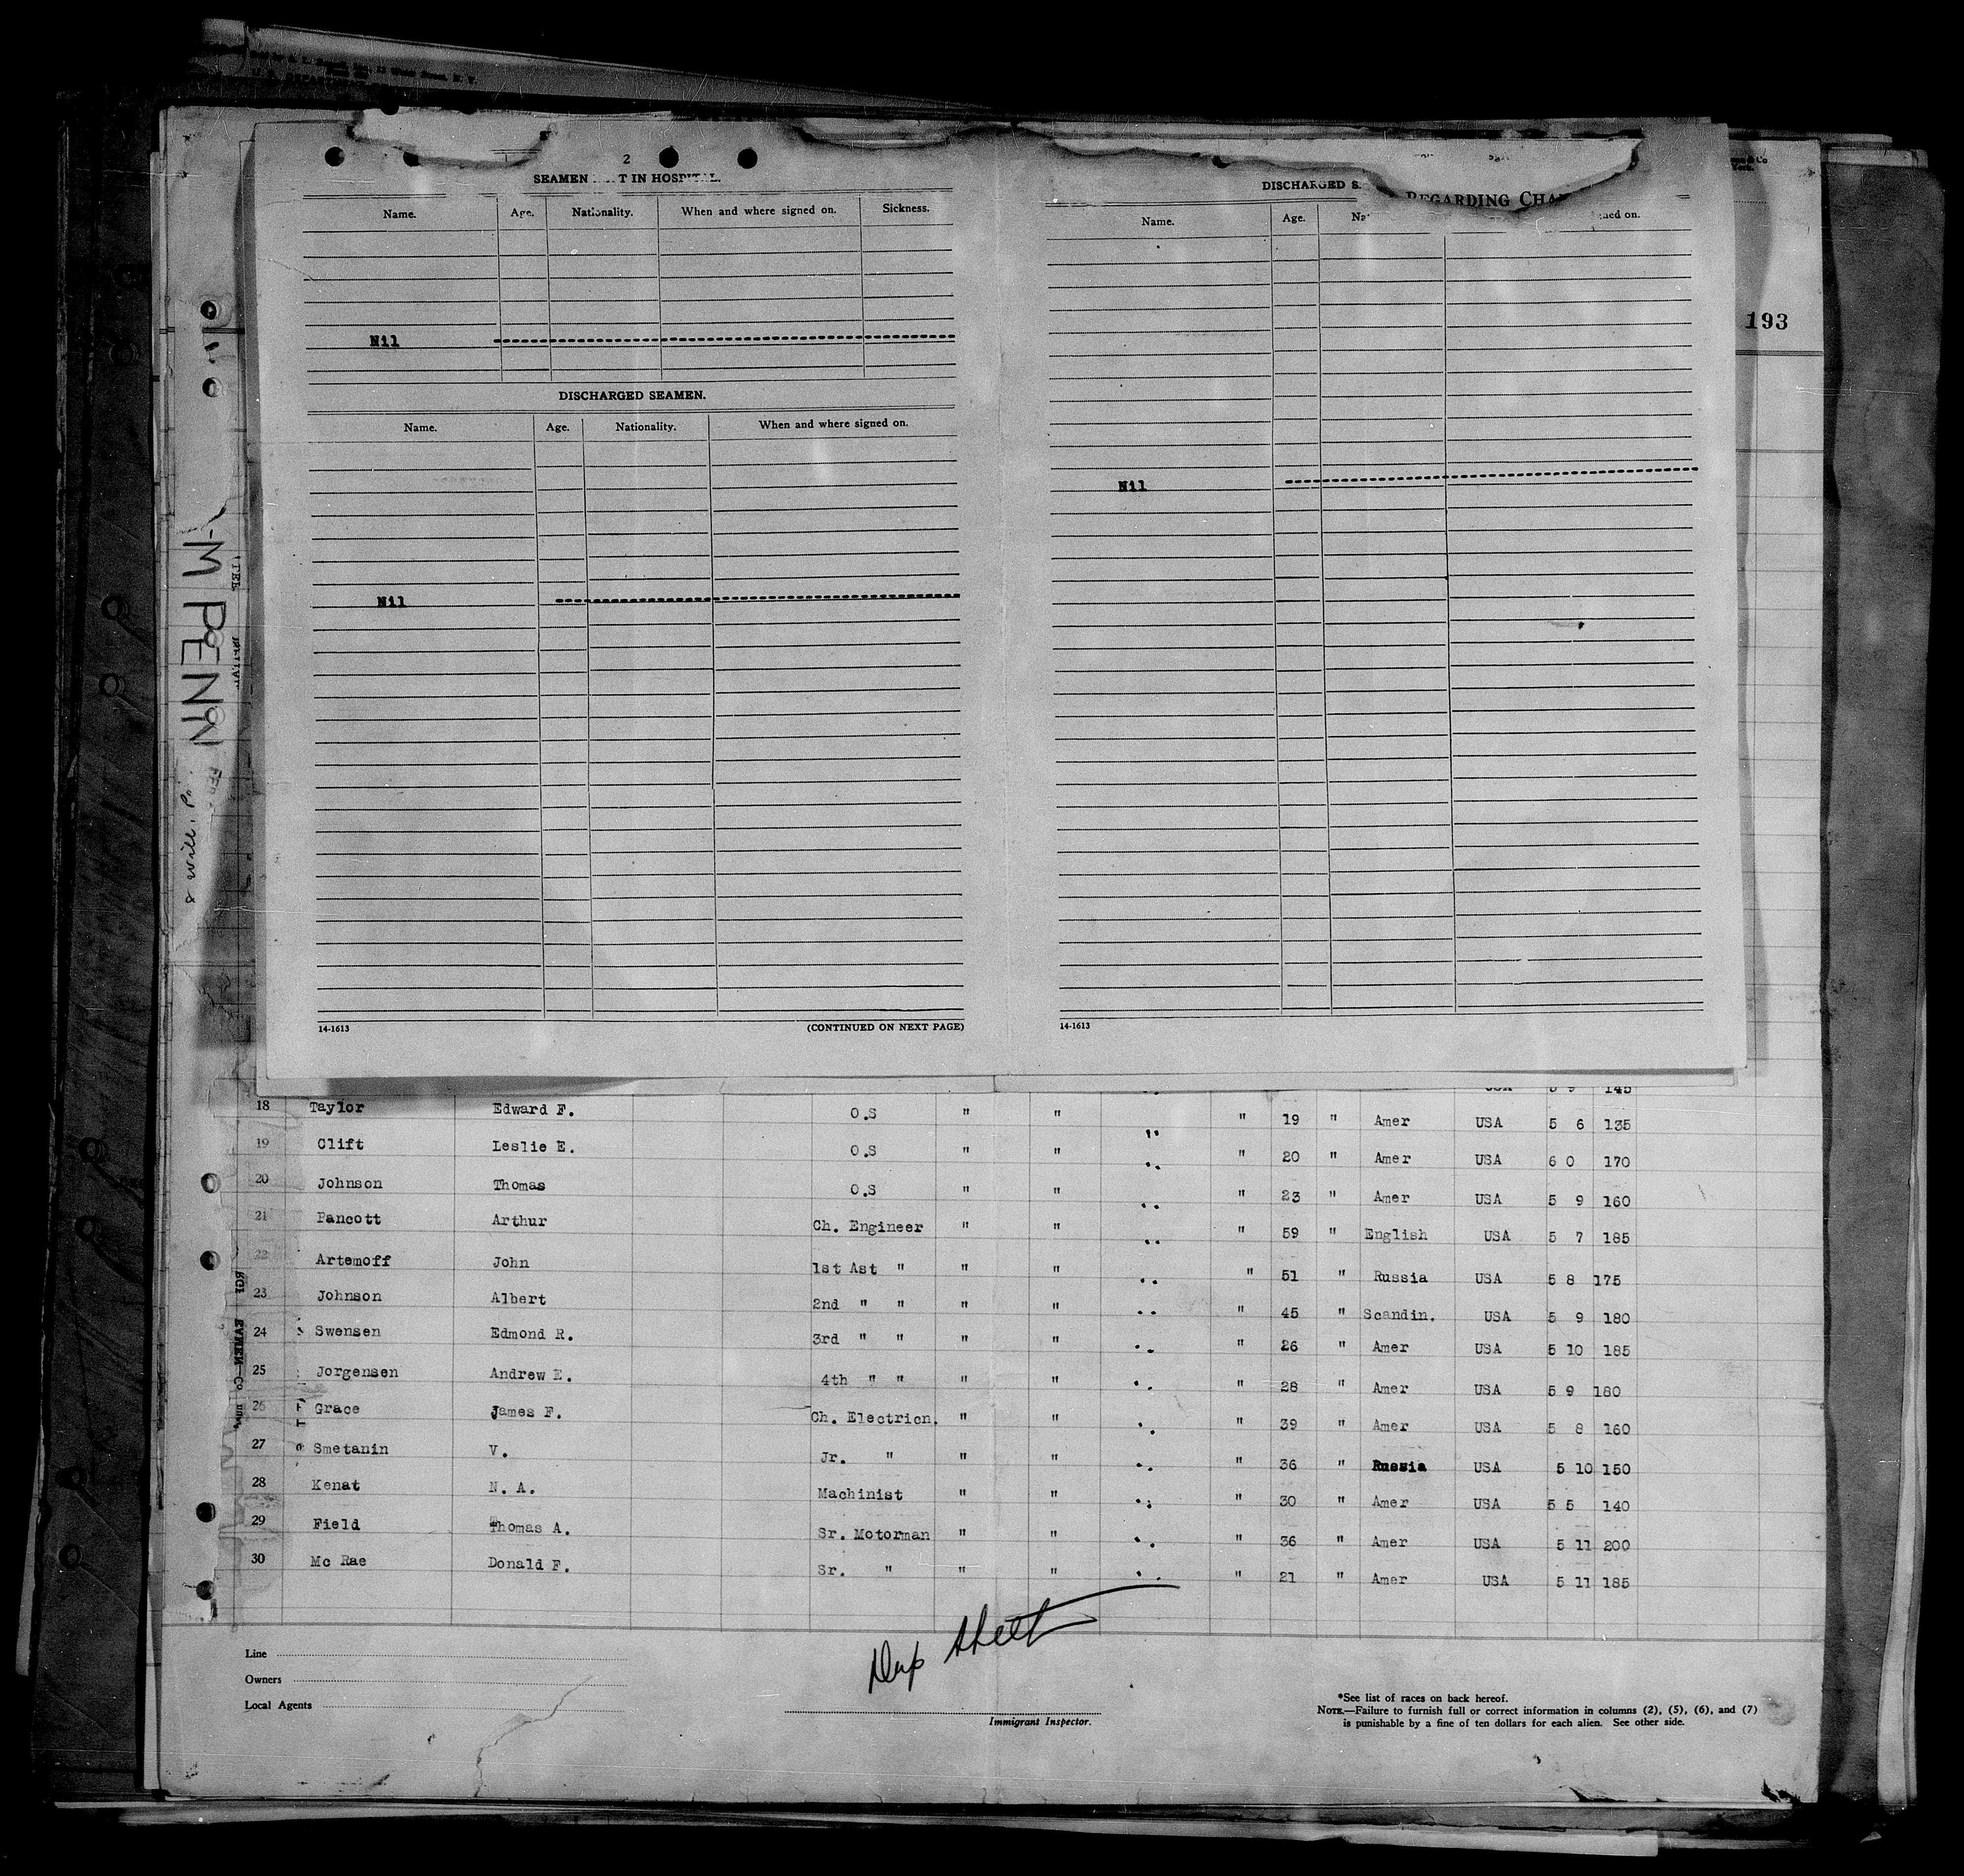 2
SEAMEN T IN HOSPITAL.
Name. Age. Nationality. When and where signed on. Sickness.
Nil
DISCHARGED SEAMEN.
Name. Age. Nationality. When and where signed on.
Nil
14-1613 (CONTINUED ON NEXT PAGE)
DISCHARGED S
REGARDING CHA
Name. Age. Na ned on.
Nil
14-1613
193
-M PENN
& will. P
USA 5 9 145
18 Taylor Edward F. O.S " " " 19 " Amer USA 5 6 135
19 Clift Leslie E. O.S " " " 20 " Amer USA 6 0 170
20 Johnson Thomas O.S " " " 23 " Amer USA 5 9 160
21 Pancott Arthur Ch. Engineer " " " 59 " English USA 5 7 185
22 Artemoff John 1st Ast " " " " 51 " Russia USA 5 8 175
23 Johnson Albert 2nd " " " " " 45 " Scandin. USA 5 9 180
24 Swensen Edmond R. 3rd " " " " " 26 " Amer USA 5 10 185
25 Jorgensen Andrew E. 4th " " " " " 28 " Amer USA 5 9 180
26 Grace James F. Ch. Electricn. " " " 39 " Amer USA 5 8 160
27 Smetanin V. Jr. " " " " 36 " Russia USA 5 10 150
28 Kenat N. A. Machinist " " " 30 " Amer USA 5 5 140
29 Field Thomas A. Sr. Motorman " " " 36 " Amer USA 5 11 200
30 Mc Rae Donald F. Sr. " " " " 21 " Amer USA 5 11 185
Dup Sheet
Line
Owners
Local Agents
Immigrant Inspector.
*See list of races on back hereof.
NOTE.—Failure to furnish full or correct information in columns (2), (5), (6), and (7)
is punishable by a fine of ten dollars for each alien. See other side.